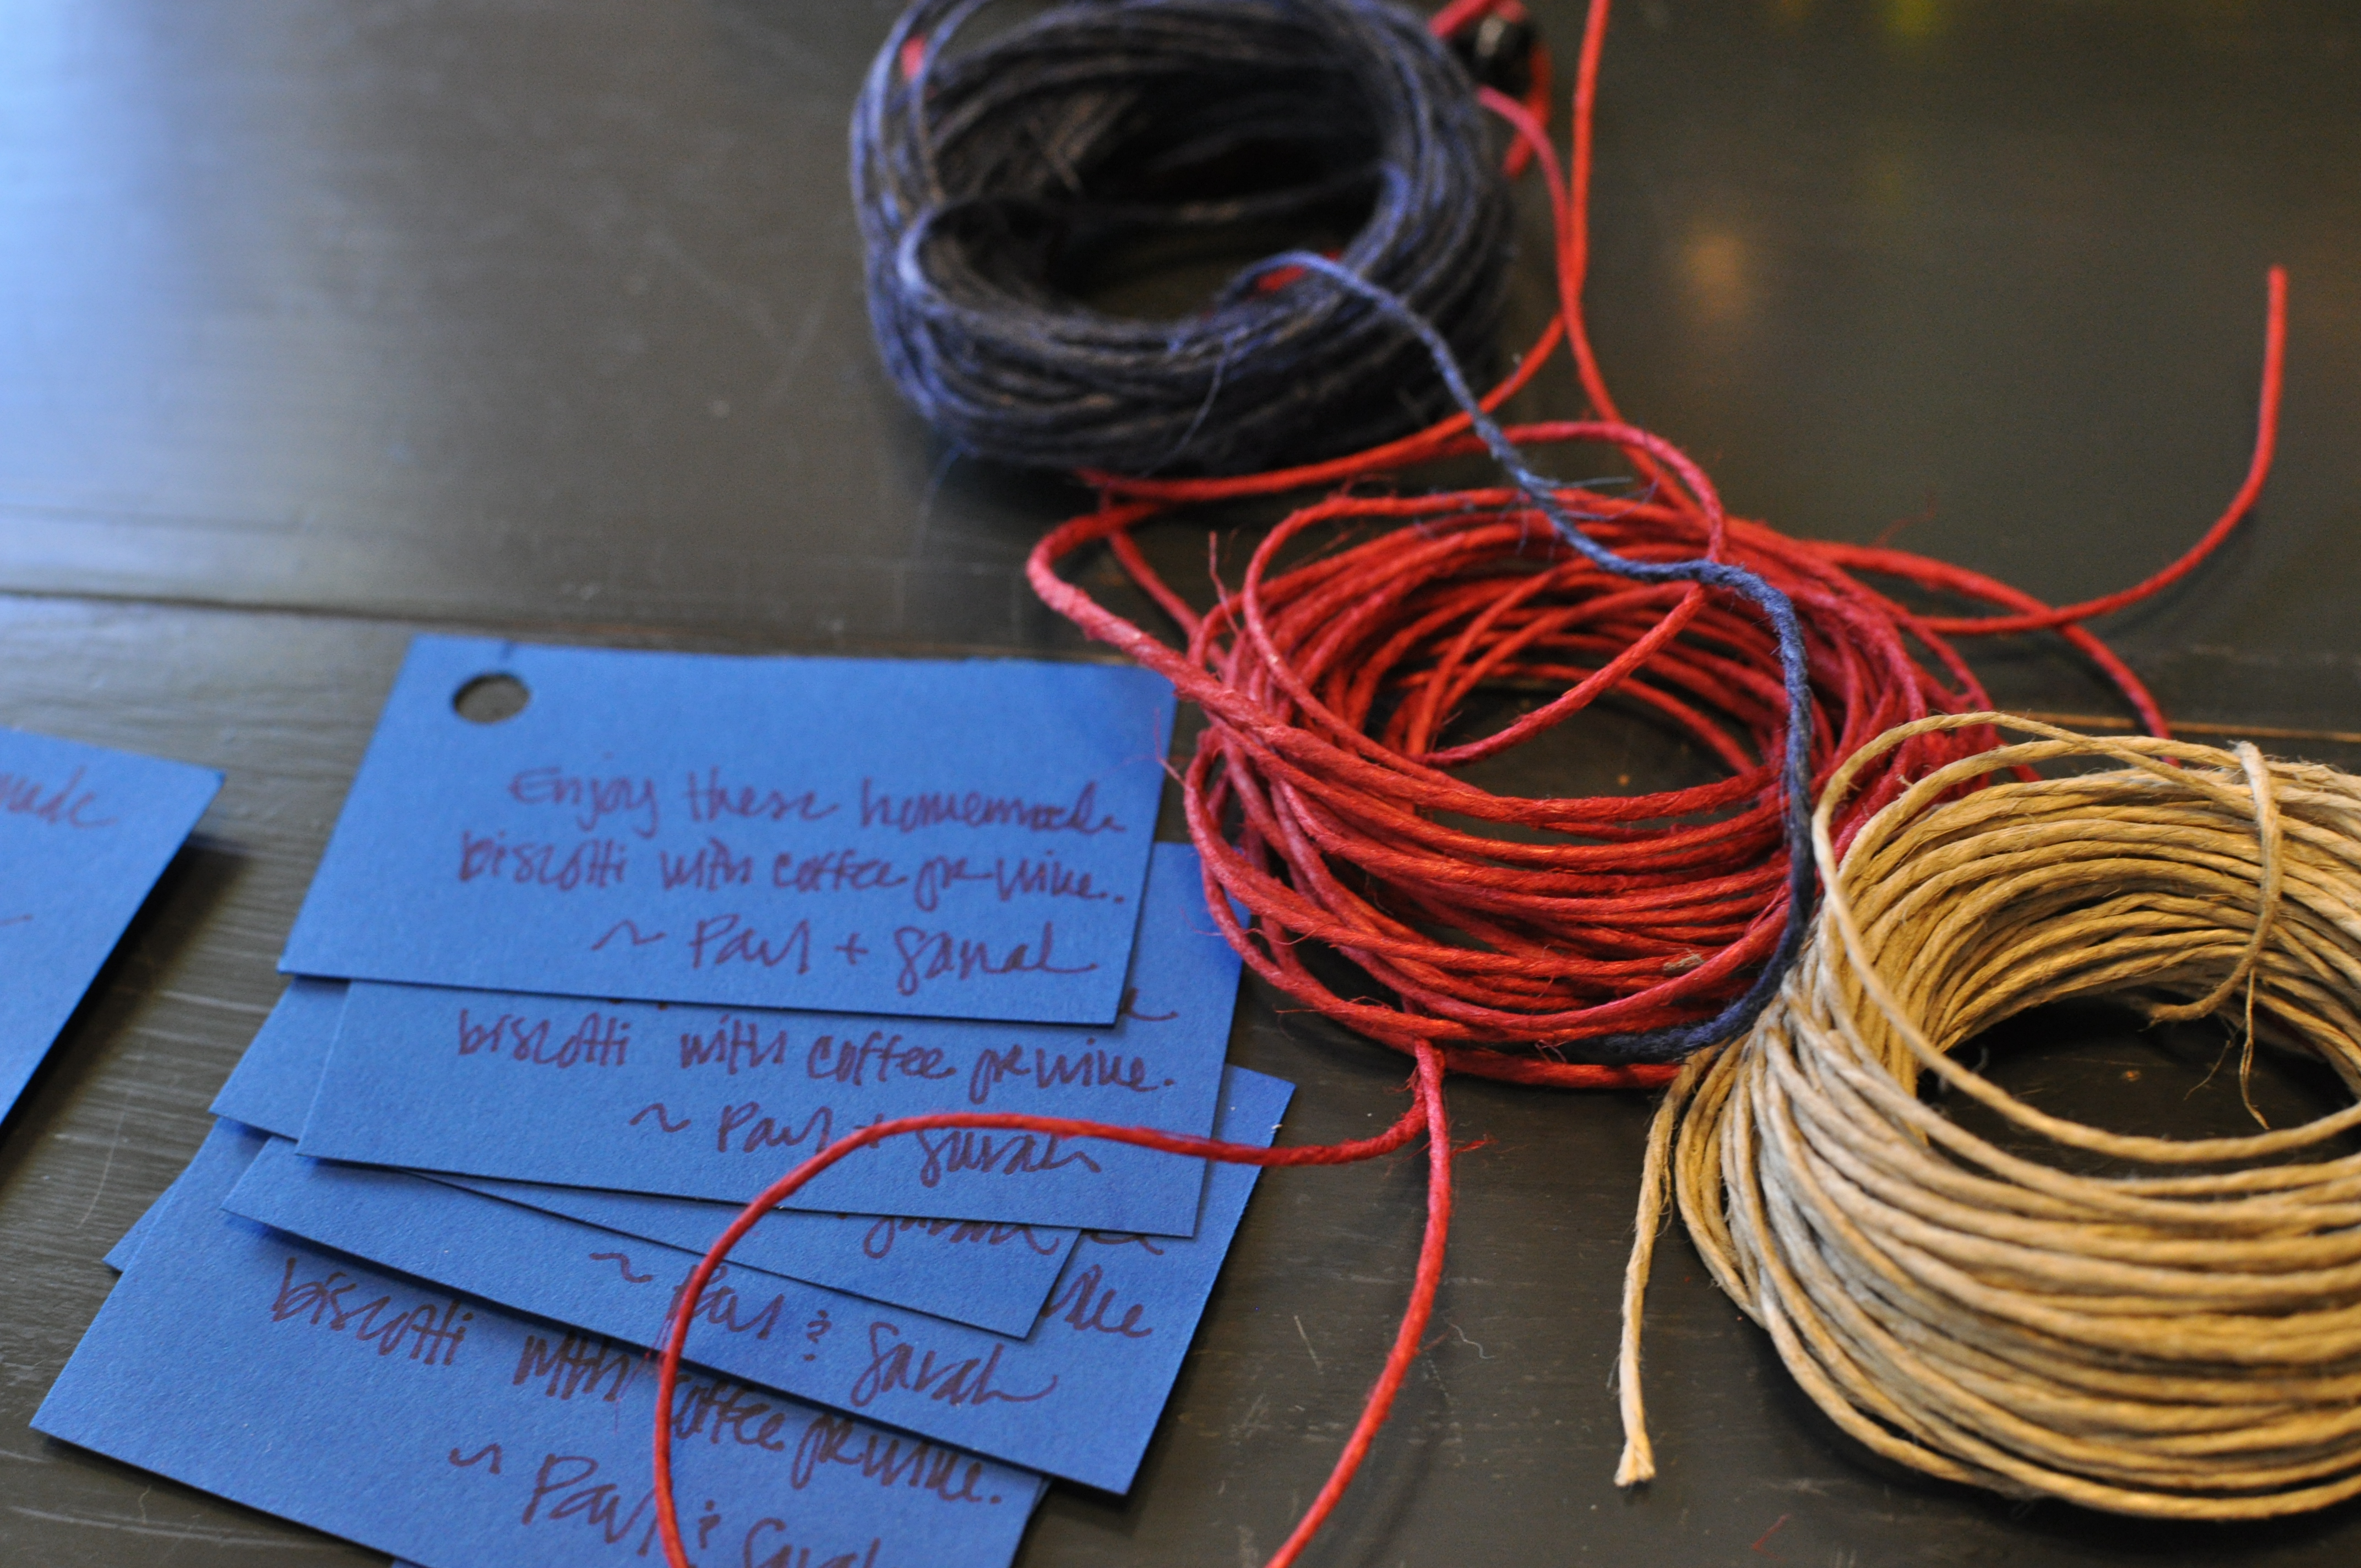 made
Enjoy these homemade
biscotti with coffee or wine.
~ Paul + Sarah
biscotti with coffee or wine.
~ Paul + Sarah
Sarah
~ Paul & Sarah
biscotti with coffee or wine.
~ Paul & Sarah